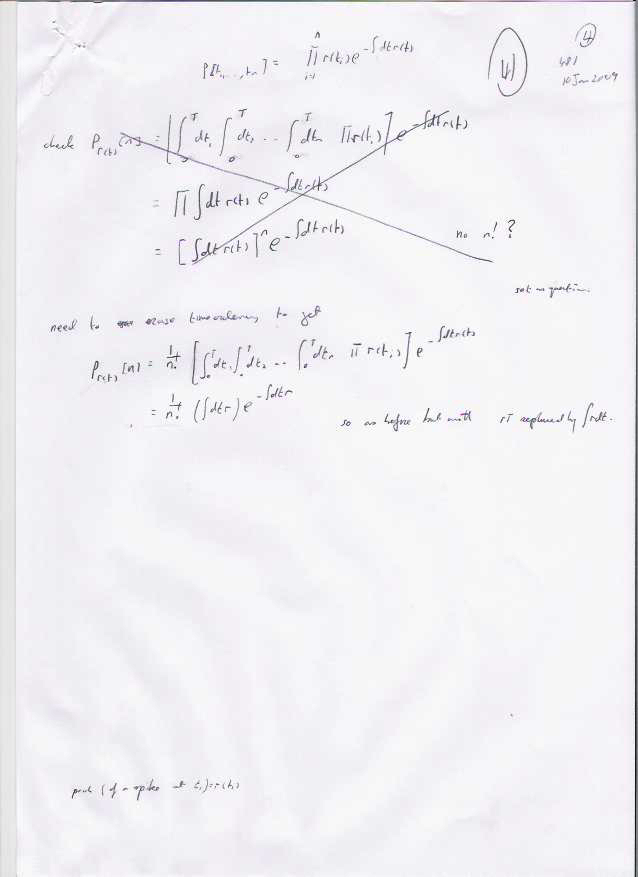 4
4
481
10 Jan 2009
P[t₁,...,tₙ] = ∏ᵢ₌₁ⁿ r(tᵢ) e^{-∫dt r(t)}
check P_{r(t)}[n] = [∫₀ᵀ dt₁ ∫₀ᵀ dt₂ ... ∫₀ᵀ dtₙ ∏ r(tᵢ)] e^{-∫dt r(t)}
= ∏ ∫dt r(t) e^{-∫dt r(t)}
= [∫dt r(t)]ⁿ e^{-∫dt r(t)}
no n! ?
set as question.
need to erase timeordering to get
P_{r(t)}[n] = 1/n! [∫₀ᵀ dt₁ ∫₀ᵀ dt₂ ... ∫₀ᵀ dtₙ ∏ r(tᵢ)] e^{-∫dt r(t)}
= 1/n! (∫dt r) e^{-∫dt r}
so as before but with rT replaced by ∫rdt.
prob (of a spike at tᵢ) = r(tᵢ)